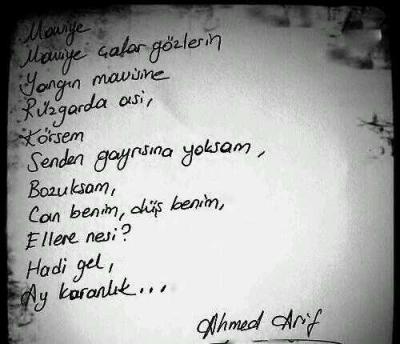 Maviye
Maviye çalar gözlerin
Yangın mavisine
Rüzgarda asi,
Körsem
Senden gayrısına yoksam,
Bozuksam,
Can benim, düş benim,
Ellere nesi?
Hadi gel,
Ay karanlık...
Ahmed Arif